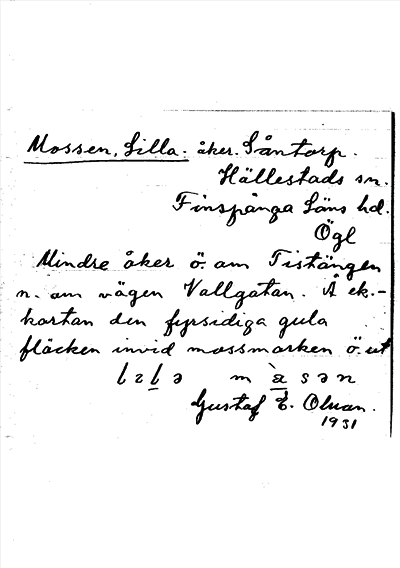 Mossen, Lilla. åker. Såntorp.
Hällestads sn.
Finspånga Läns hd.
Ögl
Mindre åker ö. om Tistängen
n. om vägen Vallgatan. Å ek.-
kartan den fyrsidiga gula
fläcken invid mossmarken ö. ut
Gustaf E. Olsson.
1931